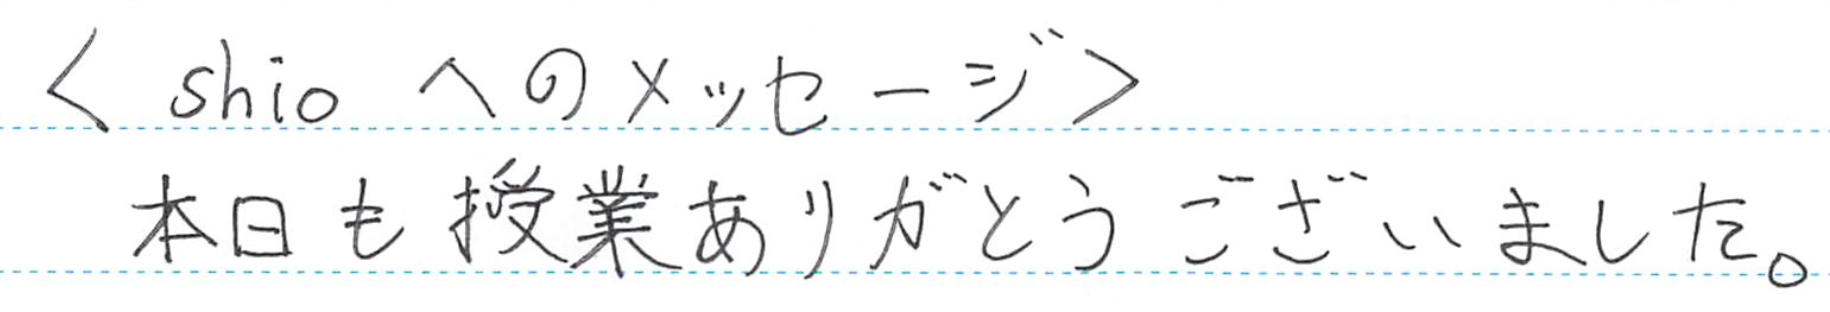 < shio へのメッセージ>
本日も授業ありがとうございました。